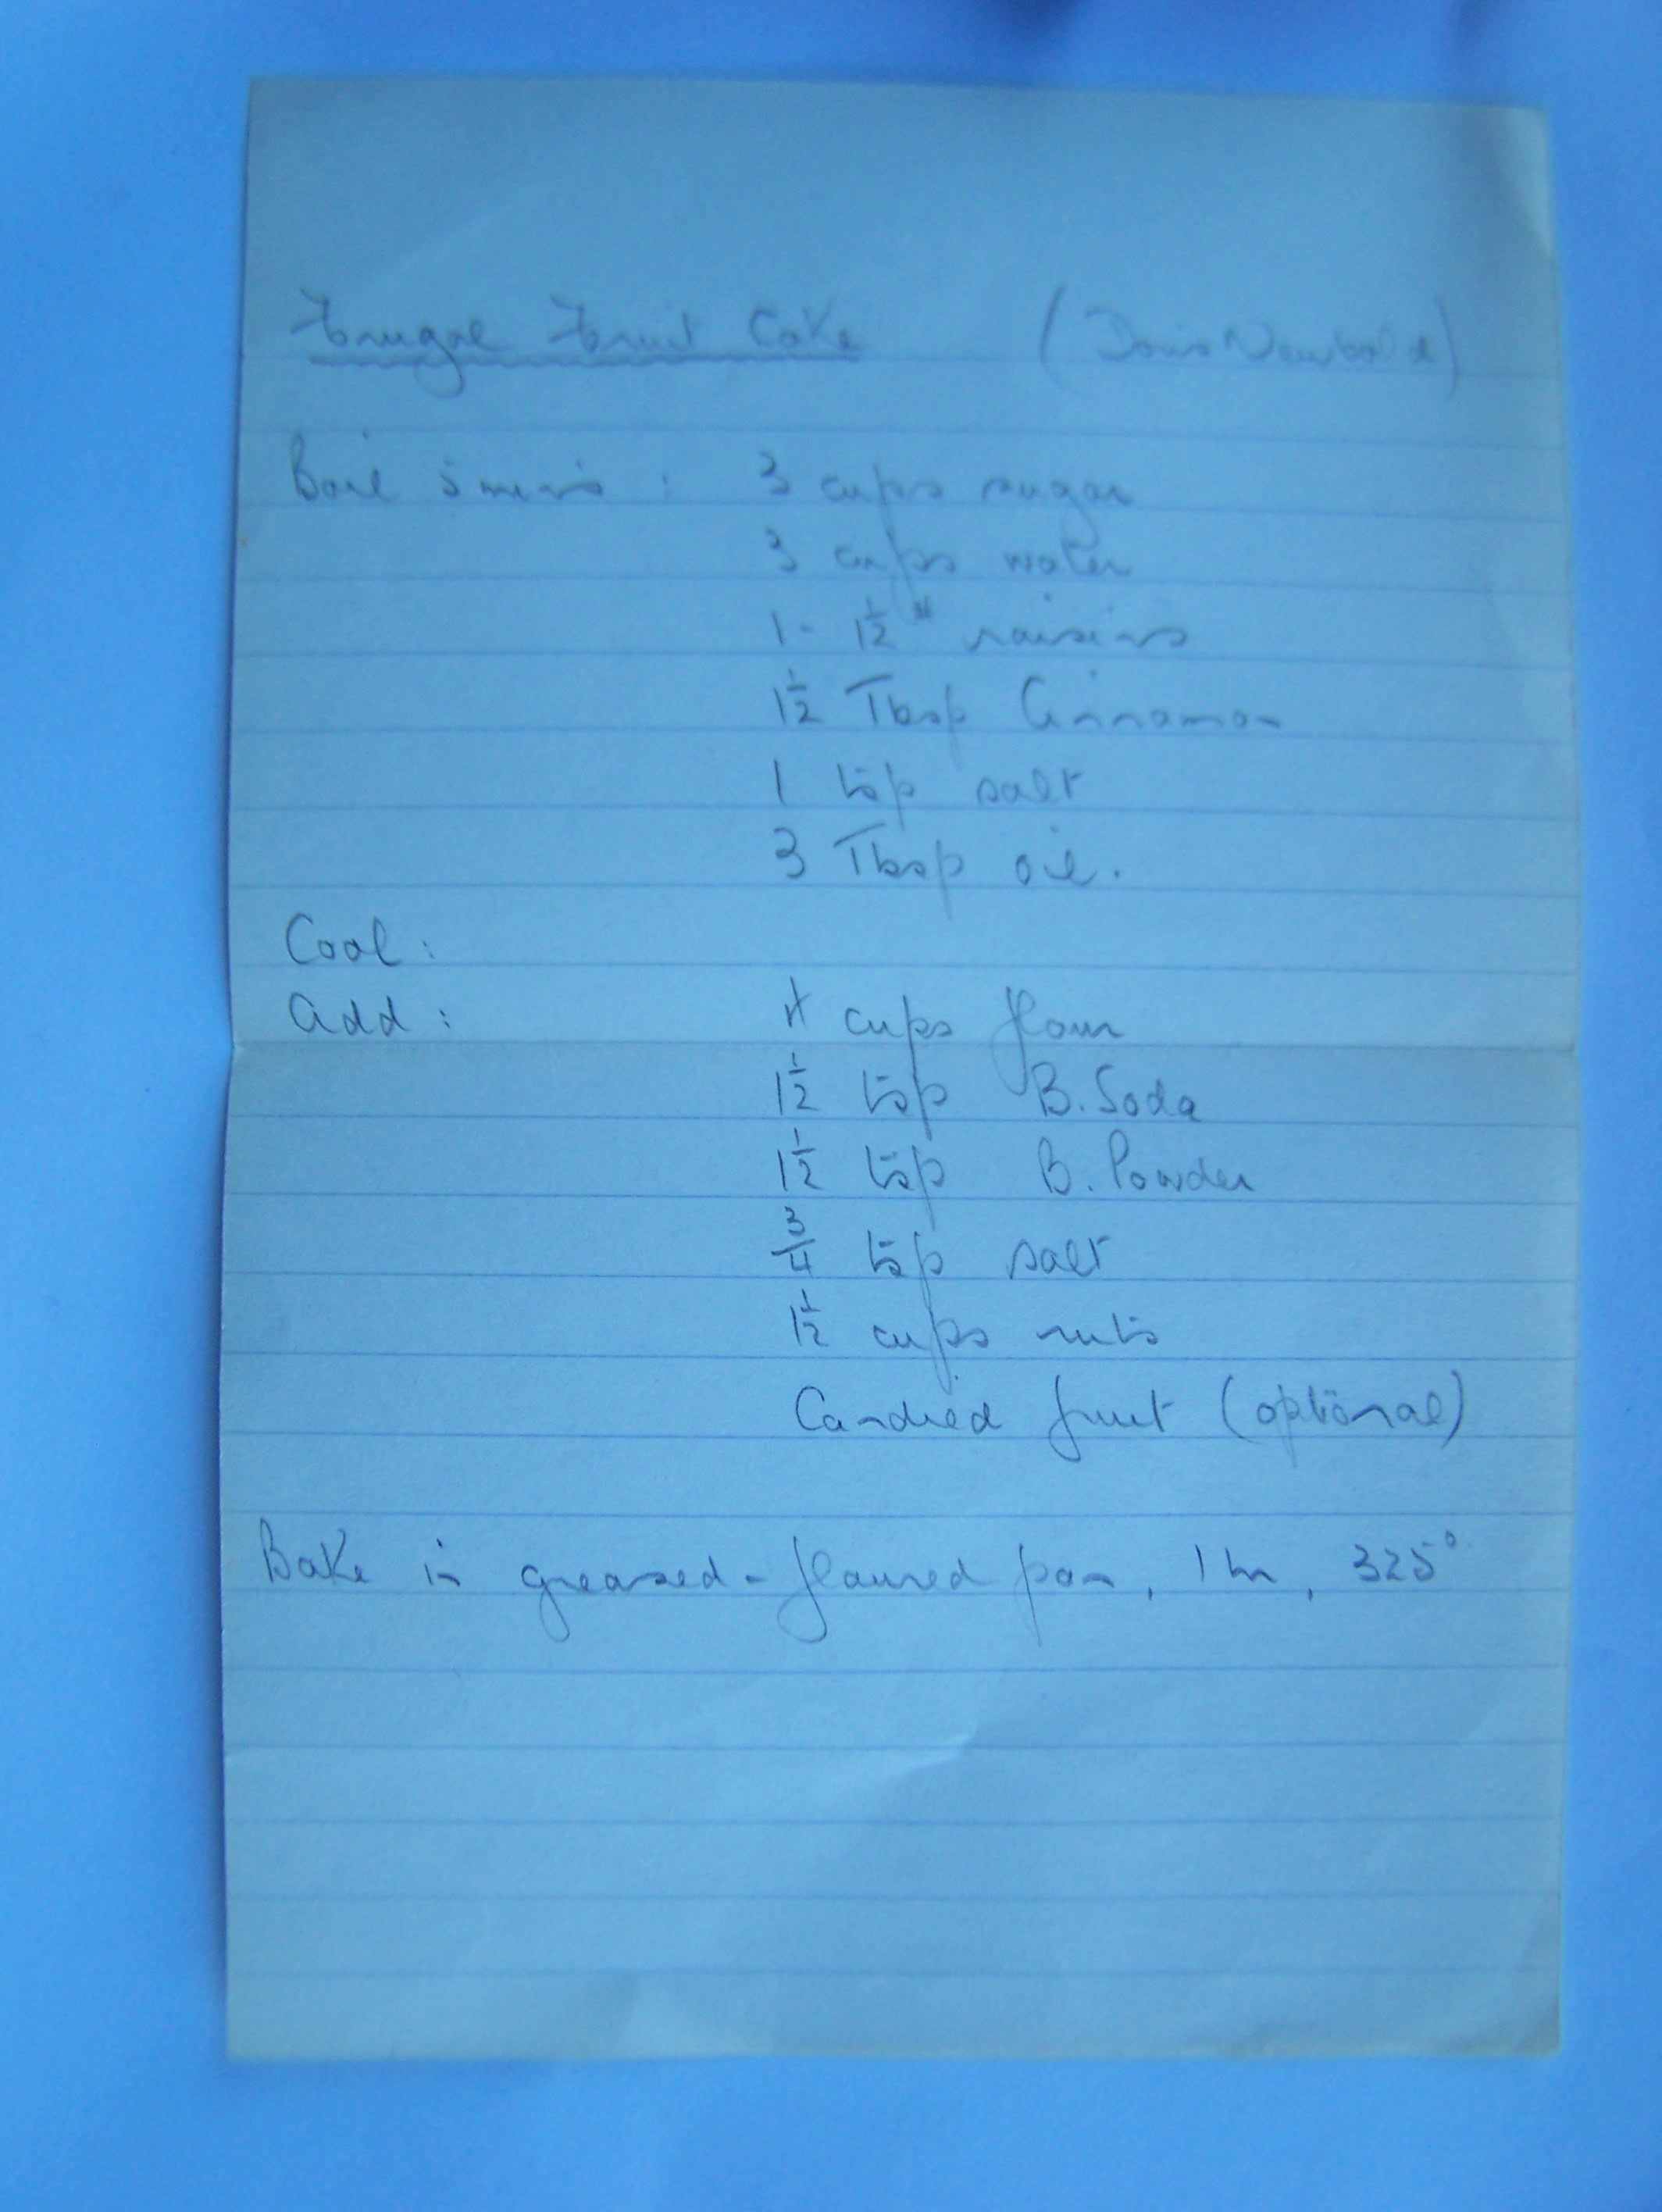 Frugal Fruit Cake (Doris Newbold)
Boil 5 mins : 3 cups sugar
3 cups water
1 - 1½ # raisins
1½ Tbsp Cinnamon
1 tsp salt
3 Tbsp oil.
Cool :
Add : 4 cups flour
1½ tsp B. Soda
1½ tsp B. Powder
¾ tsp salt
1½ cups nuts
Candied fruit (optional)
Bake in greased - floured pan, 1 hr, 325°